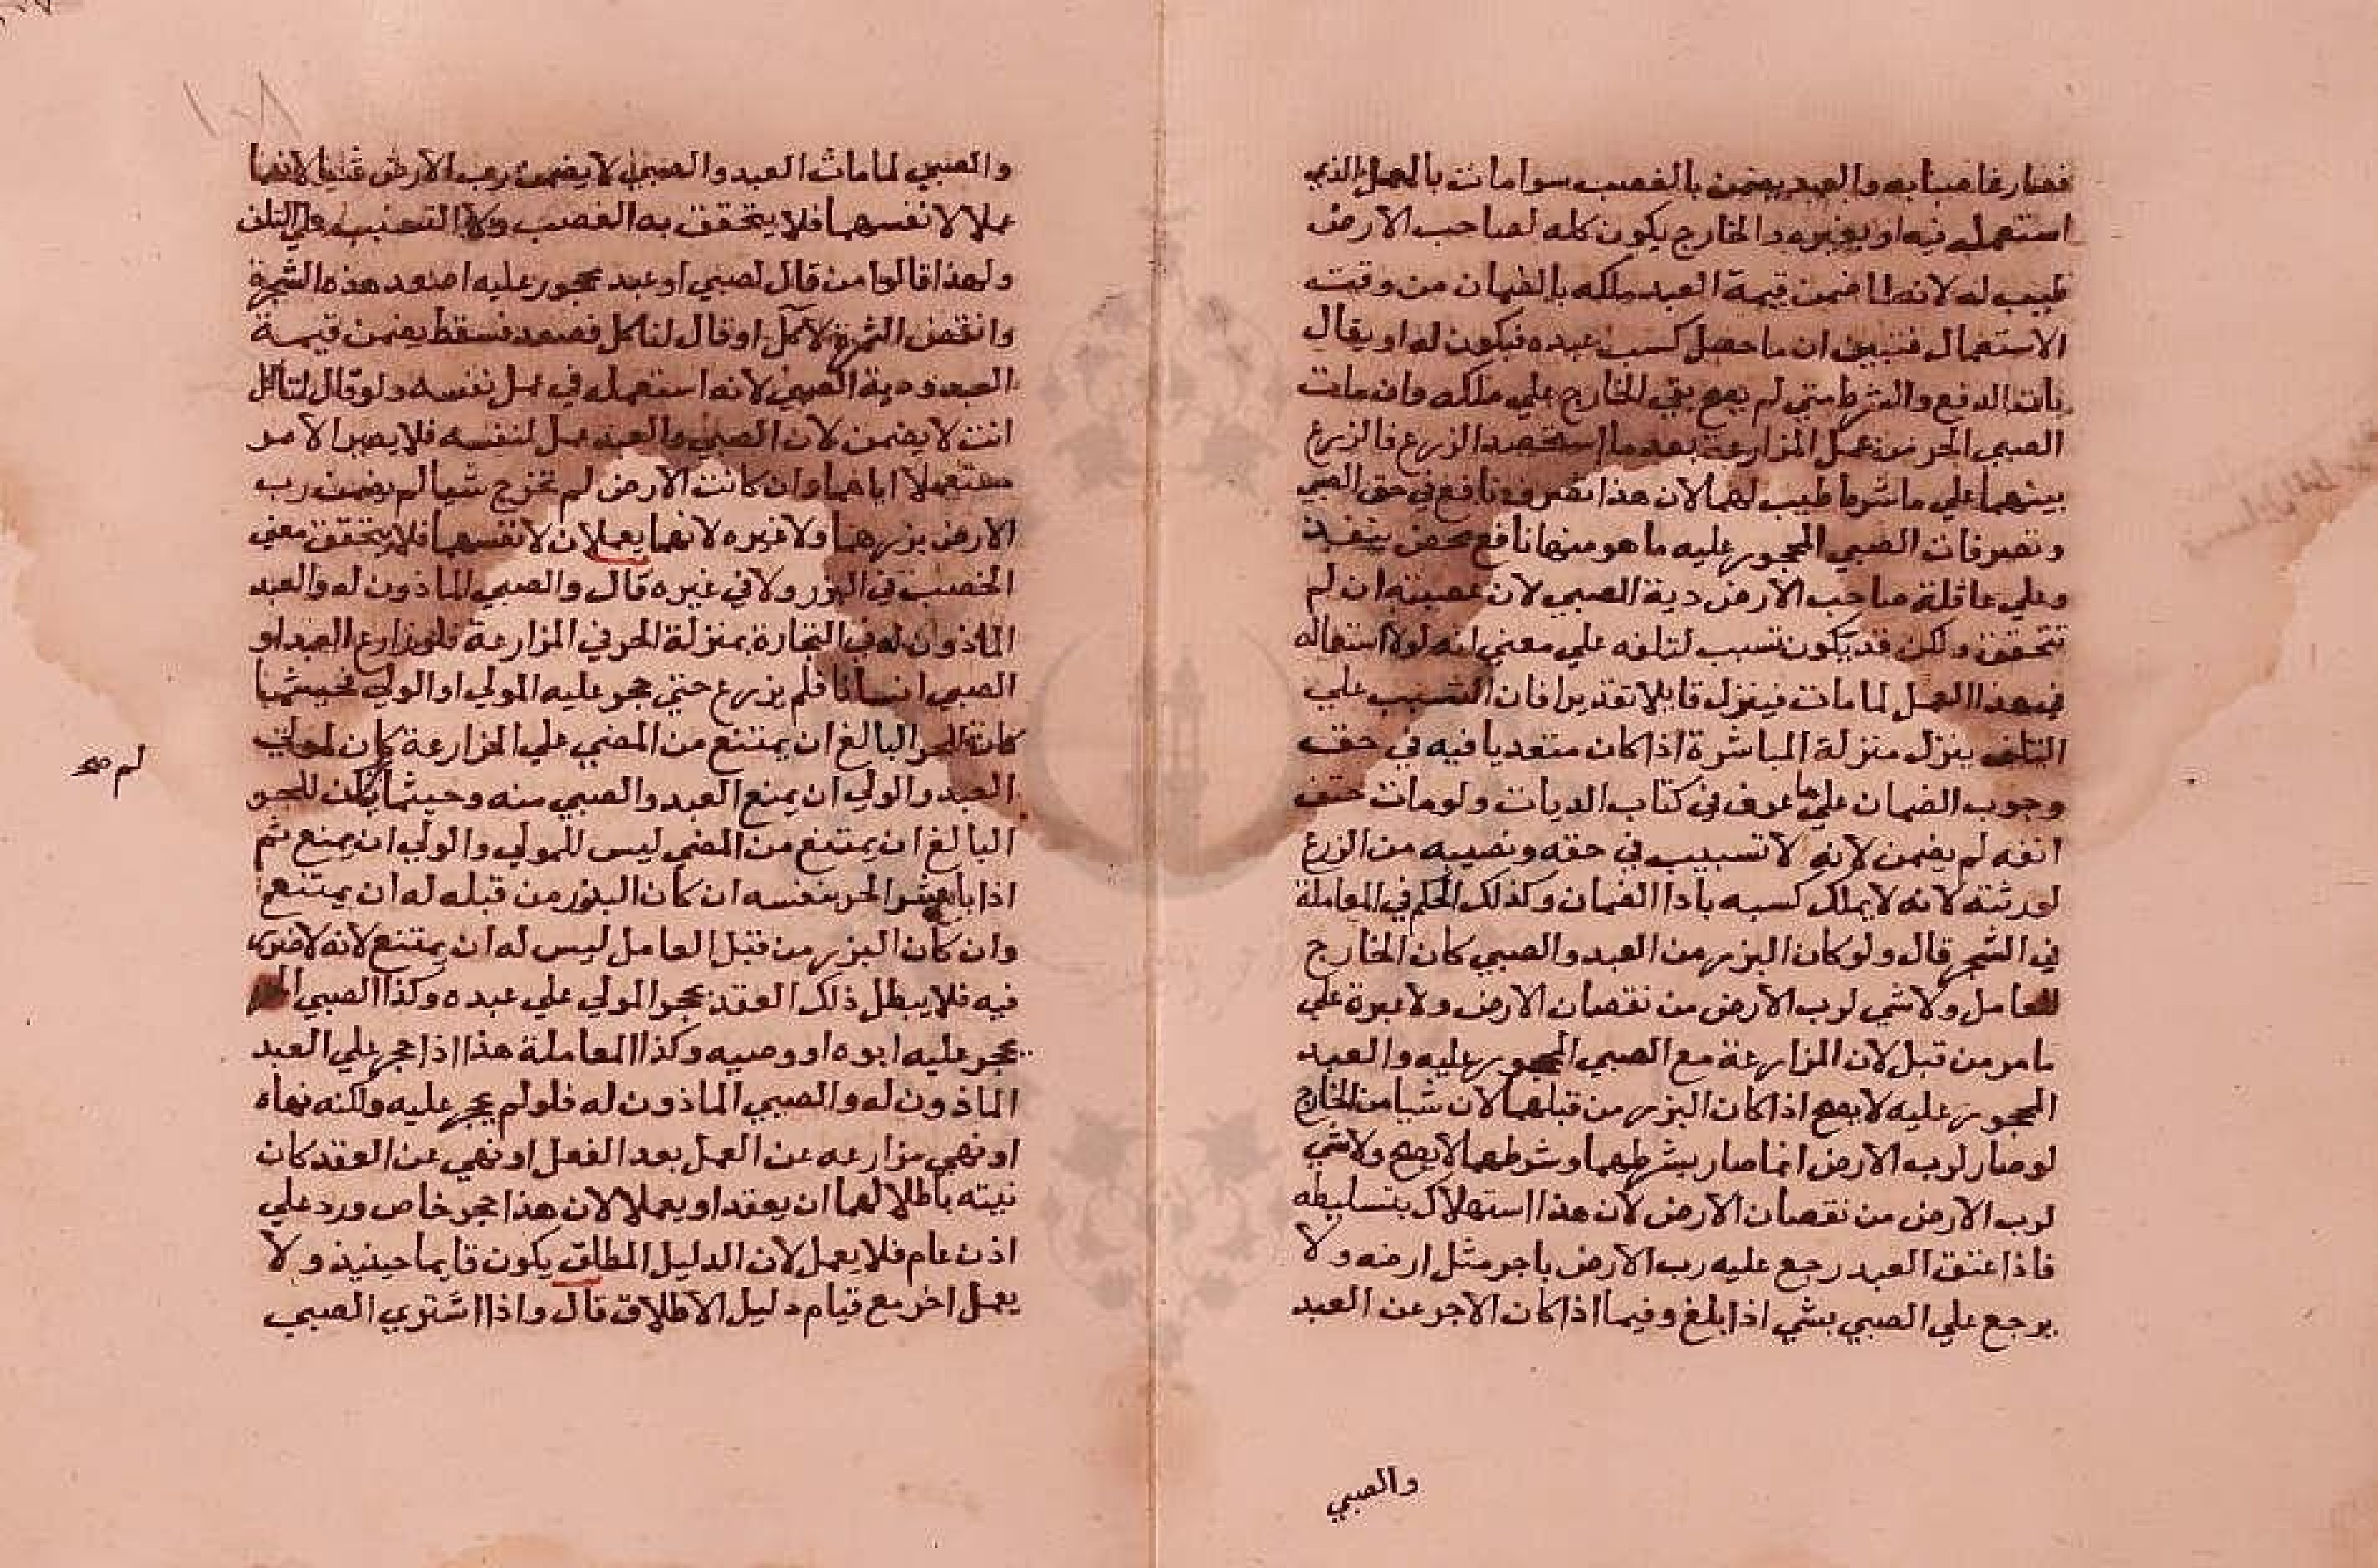 فصار غاصبا به والعبد يضمن بالغصب سوا مات بالعمل الذي
استعمله فيه او بغيره والخارج يكون كله لصاحب الارض
طيب له لانه لما ضمن قيمة العبد ملكه بالضمان من وقت
الاستعمال فتبين ان ما حصل كسب عبده فيكون له او يقال
بان الدفع والشرط متي لم يصح بقي الخارج علي ملكه وان مات
الصبي الحر من عمل المزارعة بعد ما استحصد الزرع فالزرع
بينهما علي ما شرطا طيب لهما لان هذا تصرف نافع في حق الصبي
وتصرفات الصبي المحجور عليه ما هو منها نافع محض ينفذ
وعلي عاقلة صاحب الارض دية الصبي لان غصبته ان لم
تتحقق ولكن قد يكون تسبب لتلفه علي معني انه لولا استعماله
في هذا العمل لما مات فينزل قابلا تقديرا فان التسبب علي
التلف ينزل منزلة المباشرة اذا كان متعديا فيه في حق
وجوب الضمان علي ما عرف في كتاب الديات ولو مات حتف
انفه لم يضمن لانه لا تسبيب في حقه ونصيبه من الزرع
لورثته لانه لا يملك كسبه بادا الضمان وكذلك الحكم في المعاملة
في الشجر قال ولو كان البزر من العبد والصبي كان الخارج
للعامل ولا شي لرب الارض من نقصان الارض ولا عبرة علي
ما مر من قبل لان المزارعة مع الصبي المحجور عليه والعبد
المحجور عليه لا يصح اذا كان البزر من قبلهما لان شيا من الخارج
لو صار لرب الارض انما صار بشرطهما وشرطهما لا يصح ولا شي
لرب الارض من نقصان الارض لان هذا استهلاك بتسليطه
فاذا عتق العبد رجع عليه رب الارض باجر مثل ارضه ولا
يرجع علي الصبي بشي اذا بلغ وفيما اذا كان الاجر عن العبد
والصبي
والصبي لما مات العبد والصبي لا يضمن رب الارض شيا لانهما
عملا لانفسهما فلا يتحقق به الغصب ولا التسبب علي التلف
ولهذا قالوا من قال لصبي او عبد محجور عليه اصعد هذه الشجرة
وانقض الثمرة لآكل او قال لناكل فصعد فسقط يضمن قيمة
العبد ودية الصبي لانه استعمله في عمل نفسه ولو قال لتاكل
انت لا يضمن لان الصبي والعبد عمل لنفسه فلا يصير الامر
مستعملا اياهما وان كانت الارض لم تخرج شيا لم يضمن رب
الارض بزرهما ولا غيره لانهما يعملان لانفسهما فلا يتحقق معني
الغصب في البزر ولا في غيره قال والصبي الماذون له والعبد
الماذون له في التجارة بمنزلة الحر في المزارعة فلو زارع العبد او
الصبي انسانا فلم يزرع حتي حجر عليه المولي او الولي فحيثما
كان للحر البالغ ان يمتنع من المضي علي المزارعة كان لمولي
العبد والولي ان يمنع العبد والصبي منه وحيثما يكن للحر
لم صح
البالغ ان يمتنع من المضي ليس للمولي والولي ان يمنع ثم
اذا باشر الحر بنفسه ان كان البذر من قبله له ان يمتنع
وان كان البزر من قبل العامل ليس له ان يمتنع لانه لا ضرر
فيه فلا يبطل ذلك العقد بحجر المولي علي عبده وكذا الصبي الحر
يحجر عليه ابوه او وصيه وكذا المعاملة هذا اذا حجر علي العبد
الماذون له والصبي الماذون له فلو لم يحجر عليه ولكنه نهاه
او نهي مزارعه عن العمل بعد الفعل او نهي عن العقد كان
نهيه باطلا لهما ان يعقدا ويعملا لان هذا حجر خاص ورد علي
اذن عام فلا يعمل لان الدليل المطلق يكون قايما حينيذ ولا
يعمل اخر مع قيام دليل الاطلاق قال واذا اشتري الصبي